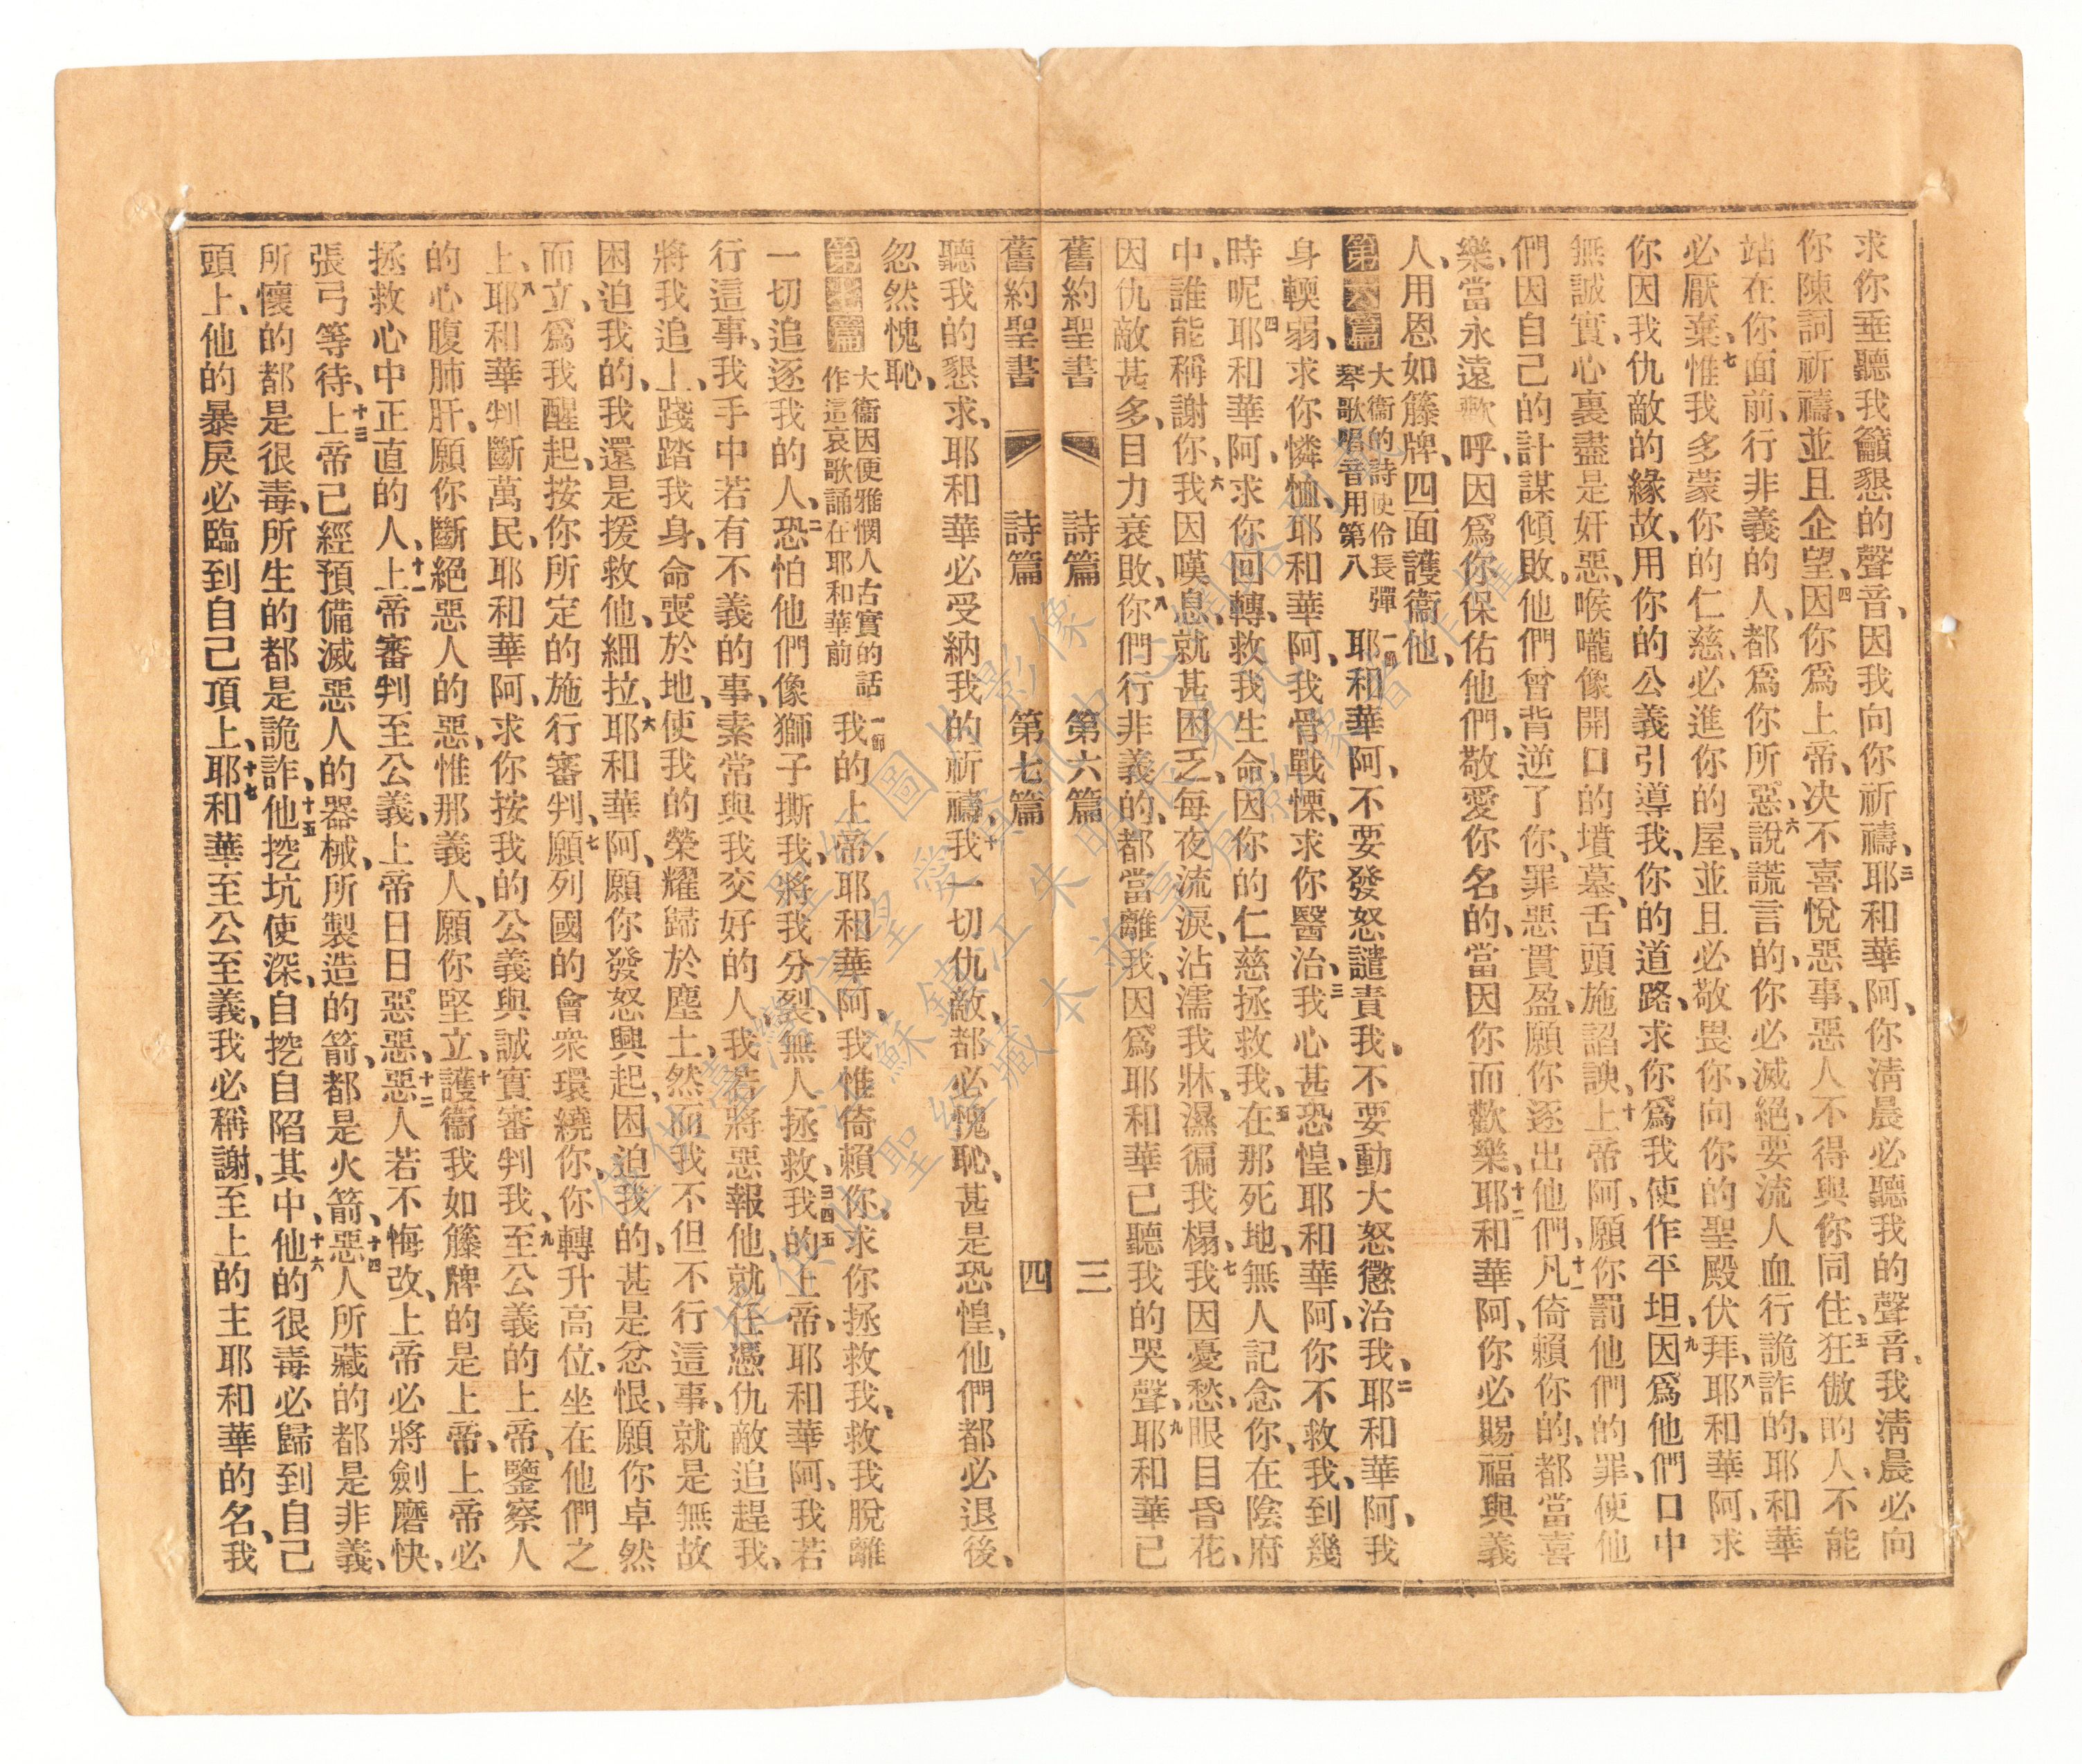 求你垂聽我籲懇的聲音、因我向你祈禱、三耶和華阿、你淸晨必聽我的聲音、我淸晨必向
你陳詞祈禱、並且企望、四因你爲上帝、决不喜悅惡事、惡人不得與你同住、五狂傲的人、不能
站在你面前、行非義的人、都爲你所惡、六說謊言的、你必滅絕、要流人血行詭詐的、耶和華
必厭棄、七惟我多蒙你的仁慈、必進你的屋、並且必敬畏你、向你的聖殿伏拜、八耶和華阿、求
你因我仇敵的緣故、用你的公義引導我、你的道路、求你爲我使作平坦、九因爲他們口中
無誠實、心裏盡是奸惡、喉嚨像開口的墳墓、舌頭施諂諛、十上帝阿、願你罰他們的罪、使他
們因自己的計謀傾敗、他們曾背逆了你、罪惡貫盈、願你逐出他們、十一凡倚賴你的、都當喜
樂、當永遠歡呼、因爲你保佑他們、敬愛你名的、當因你而歡樂、十二耶和華阿、你必賜福與義
人、用恩如籐牌、四面護衞他、
第六篇 大衞的詩使伶長彈琴歌唱音用第八 一節耶和華阿、不要發怒譴責我、不要動大怒懲治我、二耶和華阿、我
身輭弱、求你憐恤、耶和華阿、我骨戰慄、求你醫治、三我心甚恐惶、耶和華阿、你不救我、到幾
時呢、四耶和華阿、求你回轉、救我生命、因你的仁慈拯救我、五在那死地、無人記念你、在陰府
中、誰能稱謝你、六我因嘆息、就甚困乏、每夜流淚、沾濡我牀、濕徧我榻、七我因憂愁、眼目昏花、
因仇敵甚多、目力衰敗、八你們行非義的、都當離我、因爲耶和華已聽我的哭聲、九耶和華已
舊約聖書 詩篇 第六篇 三
舊約聖書 詩篇 第七篇 四
聽我的懇求、耶和華必受納我的祈禱、十我一切仇敵、都必愧恥、甚是恐惶、他們都必退後、
忽然愧恥、
第七篇 大衞因便雅憫人古實的話作這哀歌誦在耶和華前 一節我的上帝、耶和華阿、我惟倚賴你、求你拯救我、救我脫離
一切追逐我的人、二恐怕他們像獅子撕我、將我分裂、無人拯救、三四五我的上帝、耶和華阿、我若
行這事、我手中若有不義的事、素常與我交好的人、我若將惡報他、就任憑仇敵追趕我、
將我追上、踐踏我身、命喪於地、使我的榮耀歸於塵土、然而我不但不行這事、就是無故
困迫我的、我還是援救他、細拉、六耶和華阿、願你發怒興起、困迫我的、甚是忿恨、願你卓然
而立、爲我醒起、按你所定的施行審判、七願列國的會衆環繞你、你轉升高位、坐在他們之
上、八耶和華判斷萬民、耶和華阿、求你按我的公義與誠實審判我、九至公義的上帝、鑒察人
的心腹肺肝、願你斷絕惡人的惡、惟那義人、願你堅立、十護衞我如籐牌的是上帝、上帝必
拯救心中正直的人、十一上帝審判至公義、上帝日日惡惡、十二惡人若不悔改、上帝必將劍磨快、
張弓等待、十三上帝已經預備滅惡人的器械、所製造的箭、都是火箭、十四惡人所藏的都是非義、
所懷的都是很毒、所生的都是詭詐、十五他挖坑使深、自挖自陷其中、十六他的很毒必歸到自己
頭上、他的暴戾必臨到自己頂上、十七耶和華至公至義、我必稱謝、至上的主耶和華的名、我